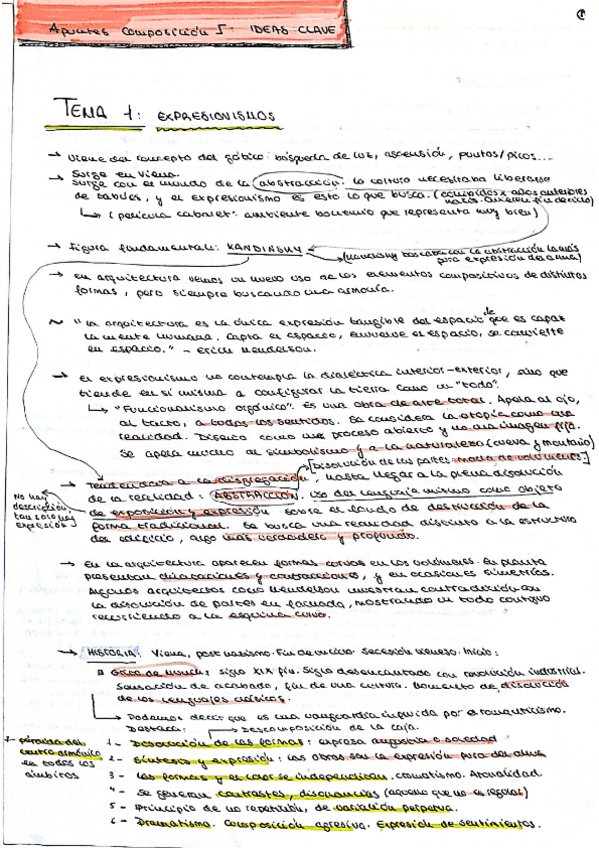 Apuntes Composición I. IDEAS CLAVE
1
TEMA 1: EXPRESIONISMOS
→ Viene del concepto del gótico: búsqueda de luz, ascensión, puntas/picos...
→ Surge en Viena.
Surge con el mundo de la abstracción. La cultura necesitaba liberarse
de tabúes, y el expresionismo es esto lo que busca. (
↳ (película cabaret: ambiente bohemio que representa muy bien)
→ Figura fundamental: KANDINSKY
(Kandinsky buscaba con la abstracción la más
pura expresión del alma)
→ En arquitectura vemos un nuevo uso de los elementos compositivos de distintas
formas, pero siempre buscando una armonía.
~ "La arquitectura es la única expresión tangible del espacio de que es capaz
la mente humana. Capta el espacio, envuelve el espacio, se convierte
en espacio." - Erich Mendelson.
→ El expresionismo no contempla la dialéctica interior-exterior, sino que
tiende en sí misma a configurar la tierra como un "todo".
↳ "Funcionalismo orgánico". Es una obra de arte total. Apela al ojo,
al tacto, a todos los sentidos. Se considera la utopía como una
realidad. Diseño como un proceso abierto y no una imagen fija.
Se apela mucho al simbolismo y a la naturaleza (cueva y montaña)
[Disolución de las partes: maclas de volúmenes]
→ Tendencia a la disgregación, hasta llegar a la plena disolución
de la realidad: ABSTRACCIÓN. Uso del lenguaje mismo como objeto
de exposición y expresión sobre el fondo de destrucción de la
forma tradicional. Se busca una realidad distinta a la estructura
del edificio, algo más verdadero y profundo.
No hay
descripción,
tan solo hay
expresión
→ En la arquitectura aparecen formas curvas en los volúmenes. En planta
presentan dilataciones y contracciones, y en ocasiones simetrías.
Algunos arquitectos como Mendelson muestran contradicción con
la disolución de partes en fachada, mostrando un todo continuo
recurriendo a la esquina curva.
→ HISTORIA: Viena, post nazismo. Fin de un ciclo. Secesión vienesa. Inicio:
Grito de Munch: siglo XIX fin. Siglo desencantado con revolución industrial.
Sensación de acabado, fin de una cultura. Momento de disolución
de los lenguajes clásicos.
→ Podemos decir que es una vanguardia influida por el romanticismo.
Destaca: → Descomposición de la caja.
1- Disolución de las formas: expresa angustia o soledad
2- Síntesis y expresión: las obras son la expresión pura del alma
3- Las formas y el color se independizan. Cromatismo. Atonalidad.
4- Se generan contrastes, disonancias (aquello que no es regular)
5- Principio de no repetición, de variación perpetua.
6- Dramatismo. Composición agresiva. Expresión de sentimientos.
7- pérdida del
centro armónico
en todos los
ámbitos